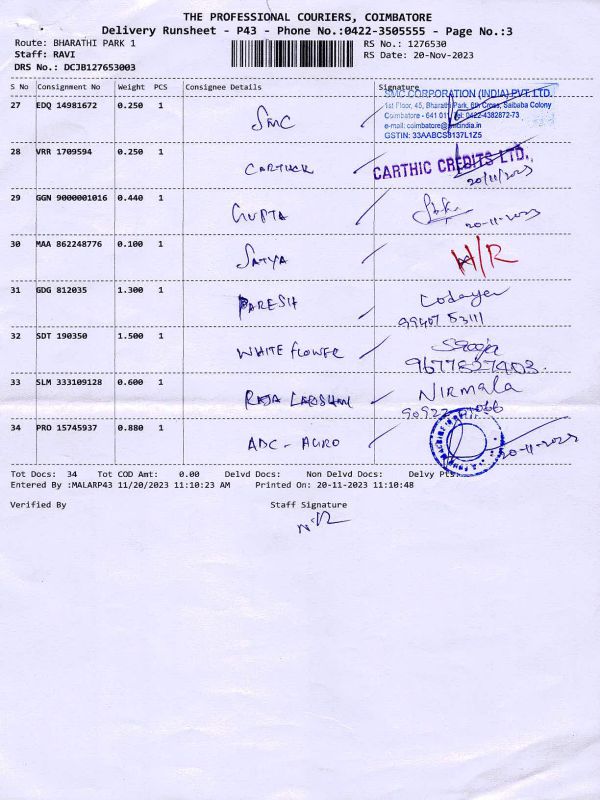 THE PROFESSIONAL COURIERS, COIMBATORE
Delivery Runsheet - P43 - Phone No.:0422-3505555 - Page No.:3
Route: BHARATHI PARK 1 RS No.: 1276530
Staff: RAVI RS Date: 20-Nov-2023
DRS No.: DCJB127653003
S No Consignment No Weight PCS Consignee Details Signature
27 EDQ 14981672 0.250 1 SMC
SMC CORPORATION (INDIA) PVT. LTD.
1st Floor, 45, Bharathi Park, 6th Cross, Saibaba Colony
Coimbatore - 641 011 Tel: 0422-4382872-73
e-mail: coimbatore@smcindia.in
GSTIN: 33AABCS3137L1Z5
28 VRR 1709594 0.250 1 CARTHICK CARTHIC CREDITS LTD.,
20/11/2023
29 GGN 9000001016 0.440 1 GUPTA
20-11-2023
30 MAA 862248776 0.100 1 SATYA H/R
31 GDG 812035 1.300 1 PARESH
99407 53111
32 SDT 190350 1.500 1 WHITE flower Saroja
9677827903.
33 SLM 333109128 0.600 1 RAJA LAKSHMI NIRMALA
34 PRO 15745937 0.880 1 ADC - AGRO 20-11-2023
Tot Docs: 34 Tot COD Amt: 0.00 Delvd Docs: Non Delvd Docs: Delvy Pts:
Entered By :MALARP43 11/20/2023 11:10:23 AM Printed On: 20-11-2023 11:10:48
Verified By Staff Signature